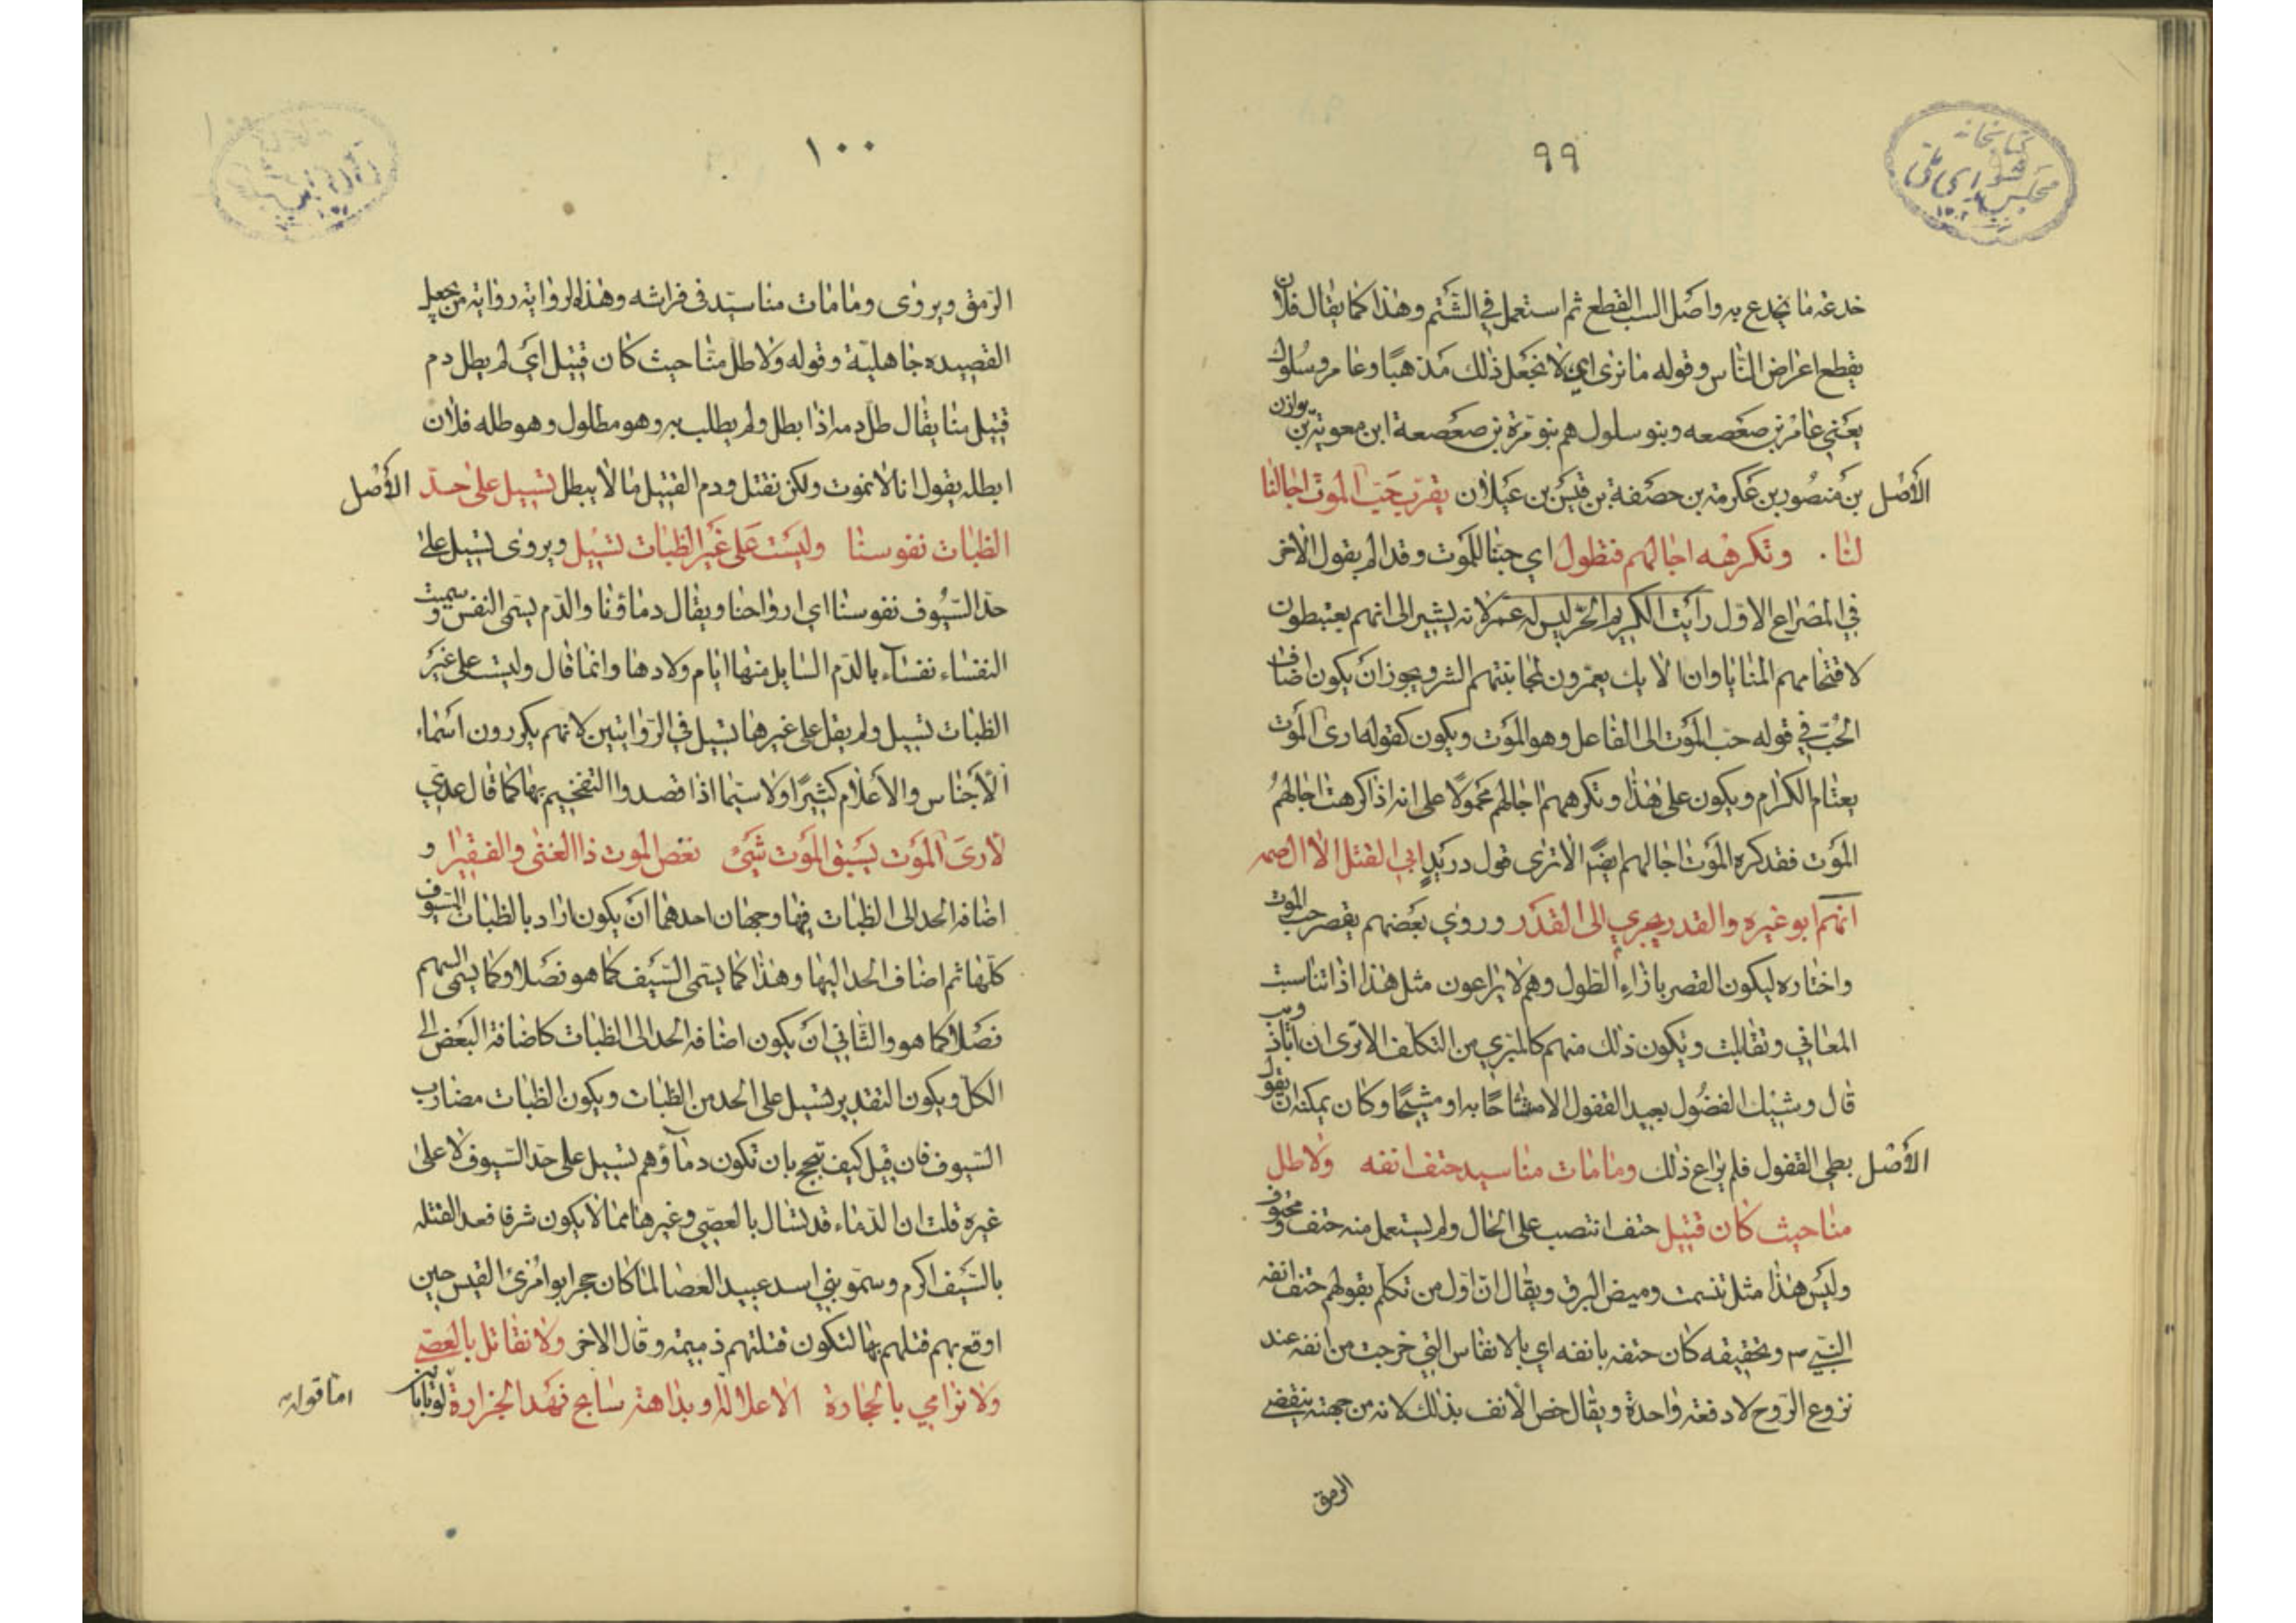 ٩٩
خدعه ما يخدع به واصل السب القطع ثم استعمل في الشتم وهذا كما يقال فلان
يقطع اعراض الناس وقوله ما نرى اي لا نجعل ذلك مذهبًا وعامر وسلول
يعني عامر بن صعصعه وبنو سلول هم بنو مرة بن صعصعة ابن معوية بن هوازن
الأصل بن منصور بن عكرمة بن حصفة بن قيس بن عيلان يقرب حب الموت اجالنا
لنا . وتكرهه اجالهم فتطول اي حبنا للموت وقد الم بقول الاخر
في المصراع الاول رأيت الكريم الحر ليس له عمر لانه يشير الى انهم يعتبطون
لاقتحامهم المنايا وان اولايك يعمرون لمجانبتهم الشر ويجوز ان يكون اضاف
الحب في قوله حب الموت الى الفاعل وهو الموت ويكون كقوله ارى الموت
يعتام الكرام ويكون على هذا وتكرههم اجالهم محمولًا على انه اذا كرهت اجالهمُ
الموت فقد كره الموت اجالهم ايضًا الا ترى قول دريدٍ ابي القتل الا ال صمه
انهم ابو غيره والقدر يجري الى القدر وروى بعضهم يقصر حب الموت
واختاره ليكون القصر بازاء الطول وهم لا يراعون مثل هذا اذا تناسبت
المعاني وتقابلت ويكون ذلك منهم كالمتبري من التكلف الا ترى ان ابا ذويب
قال وشيك الفضُول بعيد القفول الا مشاحًا به او مشيحًا وكان يمكنه ان يقول
الأصل بطي القفول فلم يراع ذلك وما مات منا سيد حتف انفه ولا طل
منا حيث كان قتيل حتف انتصب على الحال ولم يستعمل منه حتف و محتوف
وليس هذا مثل تبسمت وميض البرق ويقال ان اول من تكلم بقولهم حتف انفه
النبي ص وتحقيقه كان حتفه بانفه اي بالانفاس التي خرجت من انفه عند
نزوع الروح لا دفعة واحدة ويقال خص الانف بذلك لانه من جهته ينقضي
الرمق
١٠٠
الرمق ويروى وما مات منا سيد في فراشه وهذه الرواية رواية من يجعل
القصيده جاهلية وقوله ولا طل منا حيث كان قتيل اي لم يطل دم
قتيل منا يقال طل دمه اذا بطل ولم يطلب به وهو مطلول وهو طله فلان
ابطله يقول انا لا نموت ولكن نقتل ودم القتيل منا لا يبطل تسيل على حد الأصل
الظبات نفوسنا وليست على غير الظبات تسيل ويروى تسيل على
حد السيوف نفوسنا اي ارواحنا ويقال دماؤنا والدم يسمى النفس و سميت
النفساء نفساء بالدم السايل منها ايام ولادها وانما قال وليست على غير
الظبات تسيل ولم يقل على غيرها تسيل في الروايتين لانهم يكررون اسماء
الأجناس والأعلام كثيرًا ولا سيما اذا قصدوا التفخيم بها كما قال عدي
لا ارى الموت يسبق الموت شئ نغص الموت ذا الغنى والفقيرا و
اضافه الحد الى الظبات فيها وجهان احدهما ان يكون اراد بالظبات السيوف
كلها ثم اضاف الحد اليها وهذا كما يسمى السيف كما هو نصلا وكما يسمى السهم
نصلا كما هو والثاني ان يكون اضافه الحد الى الظبات كاضافة البعض الى
الكل ويكون التقدير تسيل على الحد من الظبات ويكون الظبات مضارب
السيوف فان قيل كيف تبجح بان تكون دماؤهم تسيل على حد السيوف لا على
غيره قلت ان الدماء قد تسال بالعصي وغيرها مما لا يكون شرفا فعد القتله
بالسيف اكرم وسمو بني اسد عبيد العصا لما كان حجر ابو امرئ القيس حين
اوقع بهم قتلهم بها لتكون قتلتهم ذميمة وقال الاخر ولا نقاتل بالعصي
ولا نرامي بالحجارة الا علالة او بداهة سابح نهد الجزارة
اما قوله